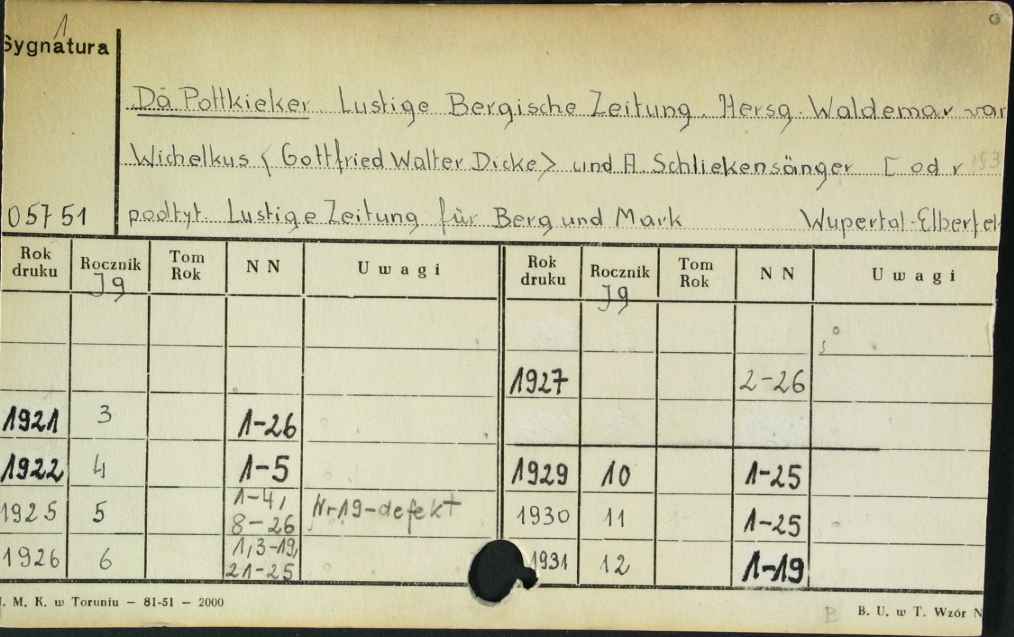 1
Sygnatura
Dä Pottkieker Lustige Bergische Zeitung. Hersg. Waldemar van
Wichelkus <Gottfried Walter Dicke> und A. Schliekensänger [od r 
05751 podtyt. Lustige Zeitung für Berg und Mark Wupertal-Elberfel
Rok druku Rocznik Jg Tom Rok N N Uwagi Rok druku Rocznik Jg Tom Rok N N Uwagi
1927 2-26
1921 3 1-26
1922 4 1-5 1929 10 1-25
1925 5 1-4, 8-26 Nr 19-defekt 1930 11 1-25
1926 6 1,3-19, 21-25 1931 12 1-19
. M. K. w Toruniu – 81-51 – 2000 B B. U. w T. Wzór N